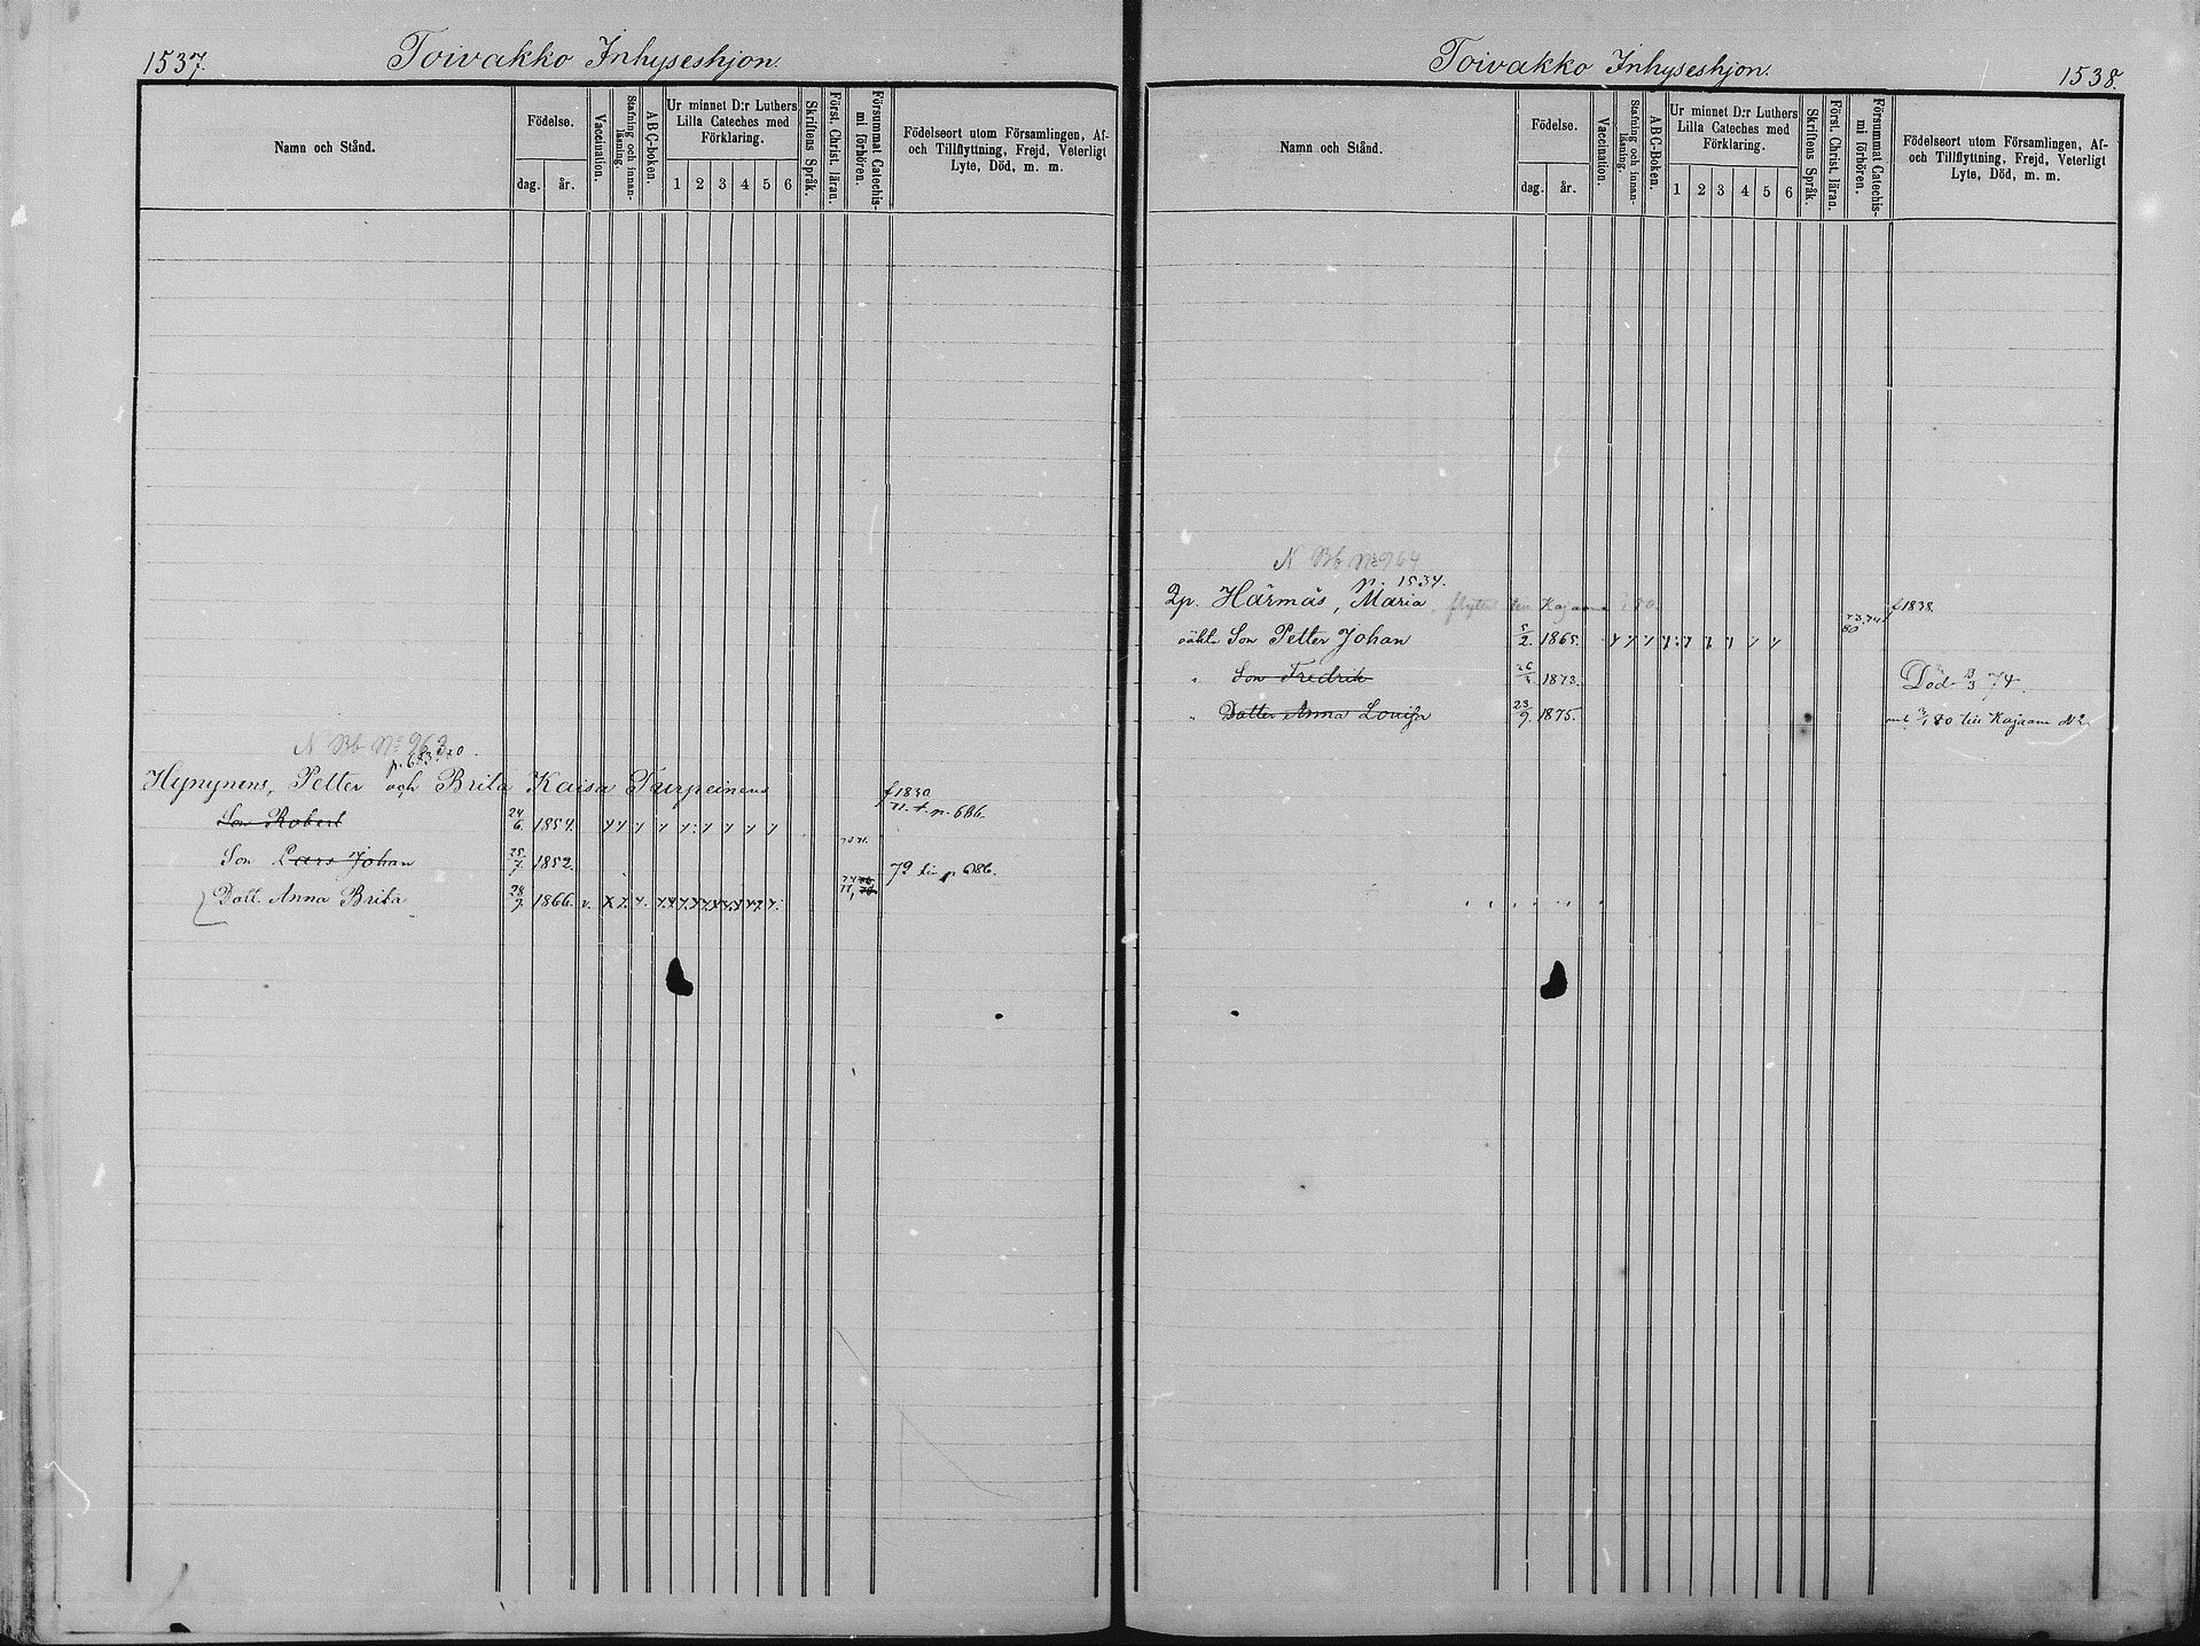 1537.
Toivakko Inhyseshjon.
Namn och Stånd.
Födelse.
dag.
år.
Vaccination.
Stafning och innan-
läsning.
ABC-boken.
Ur minnet D:r Luthers
Lilla Cateches med
Förklaring.
1 2 3 4 5 6
Skriftens Språk.
Först. Christ. läran.
Försummat Catechis-
mi förhören.
Födelseort utom Församlingen, Af-
och Tillflyttning, Frejd, Veterligt
Lyte, Död, m. m.
N Bb No 963
Hynynens, Petter och Brita Kaisa Turpeinens
f 1830
71. t. p. 686.
Son Robert 24/6. 1854.
Son Lars Johan 25/7. 1852. 72 till p 686.
Dott. Anna Brita 28/7. 1866. v.
Toivakko Inhyseshjon.
1538.
Namn och Stånd.
Födelse.
dag.
år.
Vaccination.
Stafning och innan-
läsning.
ABC-Boken.
Ur minnet D:r Luthers
Lilla Cateches med
Förklaring.
1 2 3 4 5 6
Skriftens Språk.
Först. Christ. läran.
Försummat Catechis-
mi förhören.
Födelseort utom Församlingen, Af-
och Tillflyttning, Frejd, Veterligt
Lyte, Död, m. m.
N Bb No 964
p. 1534.
Qp. Härmäs, Maria f 1838.
oäkta Son Petter Johan 5/2. 1865. 73.74 80
" Son Fredrik 1873. Död 13/3 74.
" Dotter Anna Lovisa 23/9. 1875. 80 till Kajaani